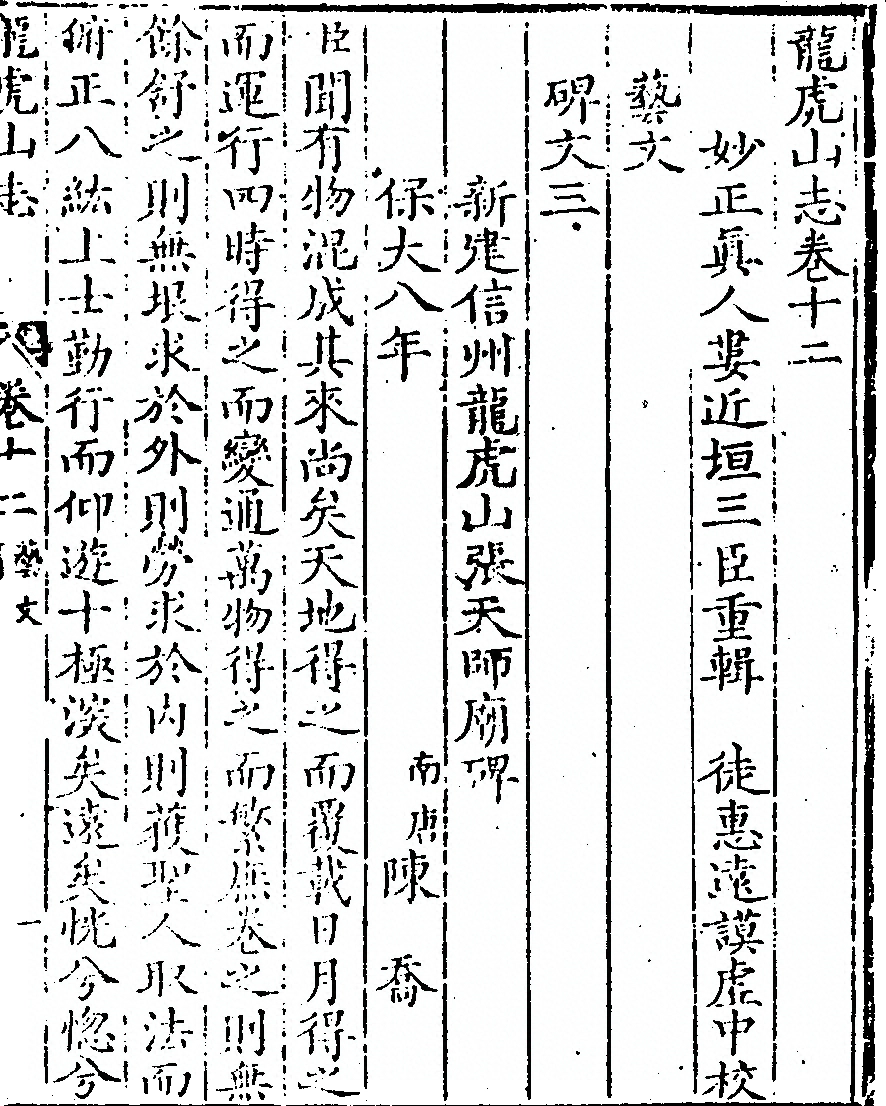 龍虎山志卷十二
妙正眞人婁近垣三臣重輯　徒惠遠謨虛中校
藝文
碑文三
新建信州龍虎山張天師廟碑
保大八年　南唐陳　喬
臣聞有物混成其來尚矣天地得之而覆載日月得之
而運行四時得之而變通萬物得之而繁廡卷之則無
餘舒之則無垠求於外則勞求於内則獲聖人取法而
俯正八紘上士勤行而仰遊十極淡矣遠矣恍兮惚兮
龍虎山志　卷十二　藝文　一